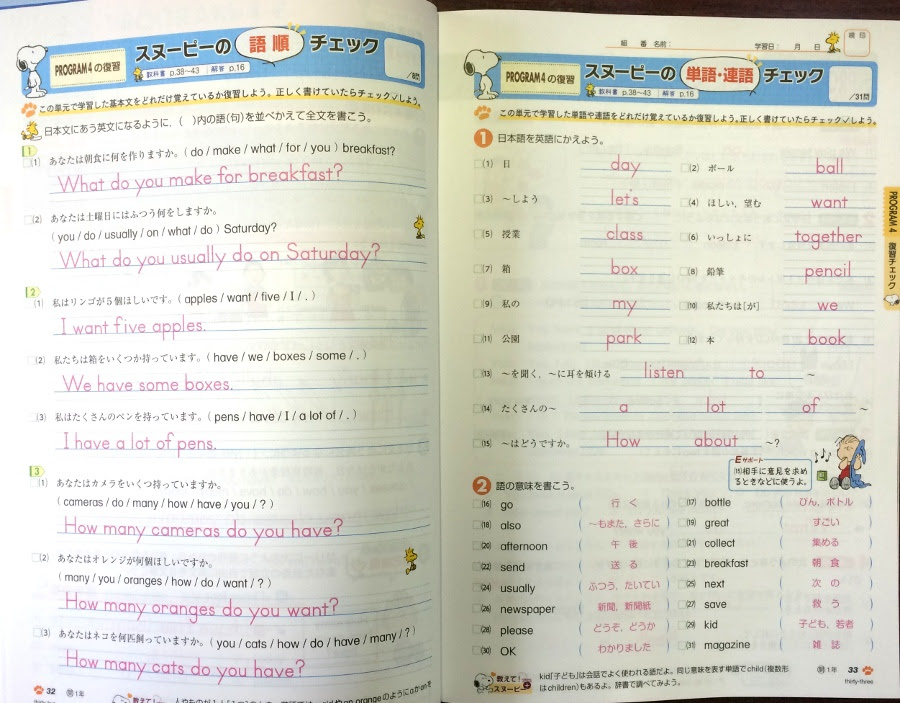 PROGRAM4の復習
スヌーピーの 語順 チェック
教科書 p.38~43 解答 p.16
/8問
この単元で学習した基本文をどれだけ覚えているか復習しよう。正しく書けていたらチェック✓しよう。
日本文にあう英文になるように,( )内の語(句)を並べかえて全文を書こう。
1
(1) あなたは朝食に何を作りますか。( do / make / what / for / you ) breakfast?
What do you make for breakfast?
(2) あなたは土曜日にはふつう何をしますか。
( you / do / usually / on / what / do ) Saturday?
What do you usually do on Saturday?
2
(1) 私はリンゴが5個ほしいです。( apples / want / five / I / . )
I want five apples.
(2) 私たちは箱をいくつか持っています。( have / we / boxes / some / . )
We have some boxes.
(3) 私はたくさんのペンを持っています。( pens / have / I / a lot of / . )
I have a lot of pens.
3
(1) あなたはカメラをいくつ持っていますか。
( cameras / do / many / how / have / you / ? )
How many cameras do you have?
(2) あなたはオレンジが何個ほしいですか。
( many / you / oranges / how / do / want / ? )
How many oranges do you want?
(3) あなたはネコを何匹飼っていますか。( you / cats / how / do / have / many / ? )
How many cats do you have?
32 開1年
教えて!
組 番 名前: 学習日: 月 日
検印
PROGRAM4の復習
スヌーピーの 単語・連語 チェック
教科書 p.38~43 解答 p.16
/31問
この単元で学習した単語や連語をどれだけ覚えているか復習しよう。正しく書けていたらチェック✓しよう。
1 日本語を英語にかえよう。
(1) 日 day (2) ボール ball
(3) ~しよう let's (4) ほしい,望む want
(5) 授業 class (6) いっしょに together
(7) 箱 box (8) 鉛筆 pencil
(9) 私の my (10) 私たちは[が] we
(11) 公園 park (12) 本 book
(13) ~を聞く,~に耳を傾ける listen to ~
(14) たくさんの~ a lot of ~
(15) ~はどうですか。 How about ~?
Eサポート
(15)相手に意見を求めるときなどに使うよ。
2 語の意味を書こう。
(16) go ( 行く ) (17) bottle ( びん,ボトル )
(18) also ( ~もまた,さらに ) (19) great ( すごい )
(20) afternoon ( 午後 ) (21) collect ( 集める )
(22) send ( 送る ) (23) breakfast ( 朝食 )
(24) usually ( ふつう,たいてい ) (25) next ( 次の )
(26) newspaper ( 新聞,新聞紙 ) (27) save ( 救う )
(28) please ( どうぞ,どうか ) (29) kid ( 子ども,若者 )
(30) OK ( わかりました ) (31) magazine ( 雑誌 )
教えて!スヌーピー
kid「子ども」は会話でよく使われる語だよ。同じ意味を表す単語でchild(複数形
はchildren)もあるよ。辞書で調べてみよう。
開1年 33
thirty-three
PROGRAM 4 復習チェック